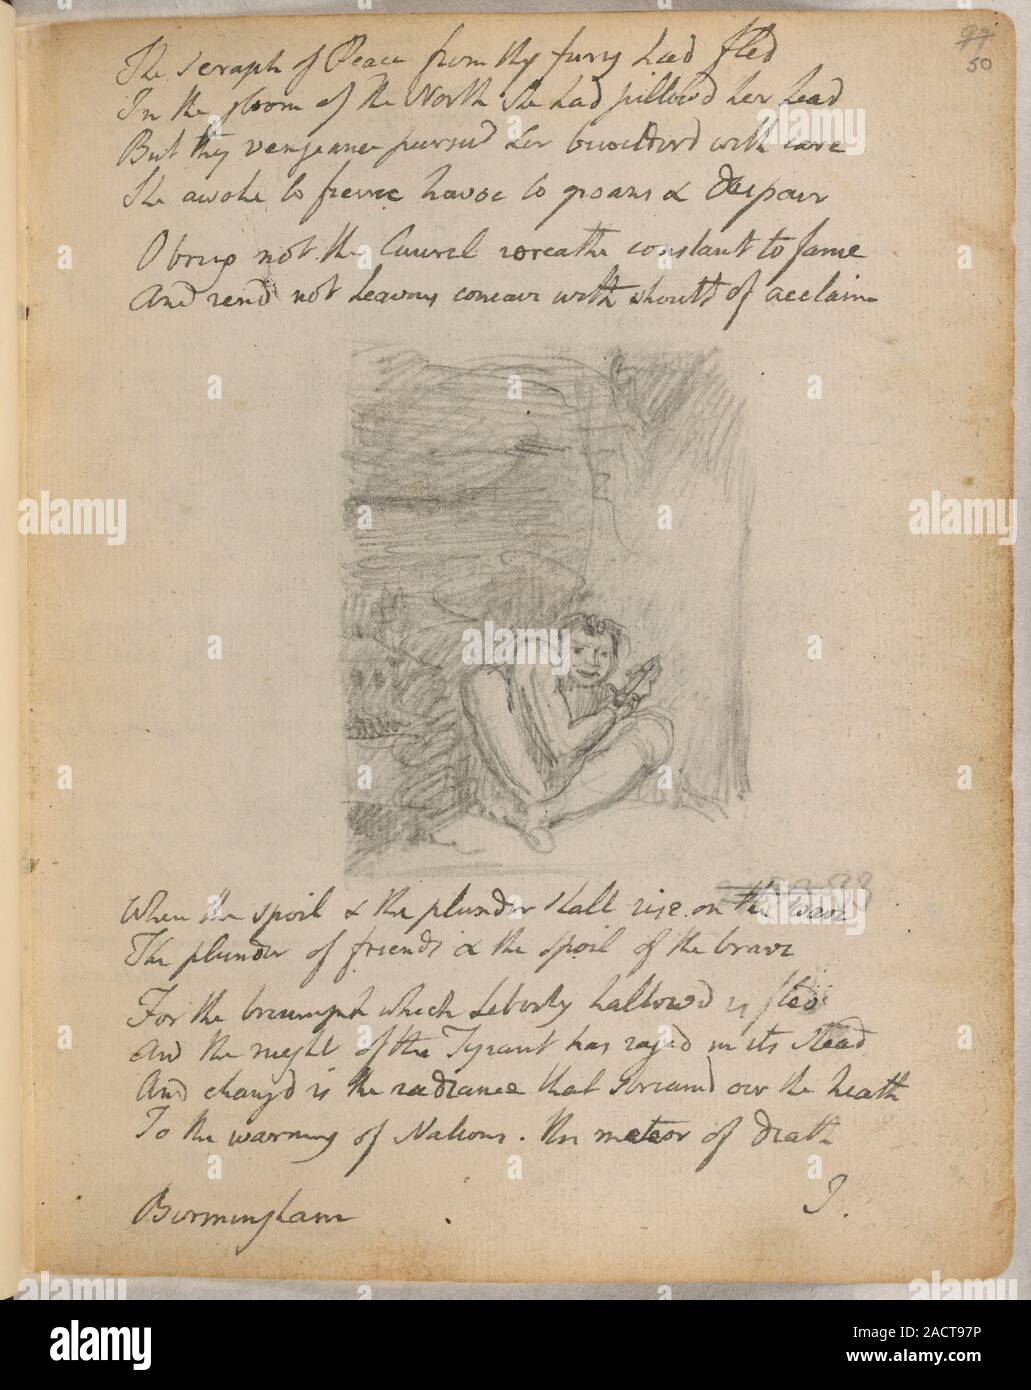 97
50
The seraph of Peace from thy fury had fled
In the gloom of the North she had pillowd her head
But thy vengeance pursud her bewilderd with care
She awoke to fierce havoc to groans & despair
O bring not the laurel wreathe constant to fame
And rend not heavens concave with shouts of acclaim
When the spoil & the plunder shall rise on the wave
The plunder of friends & the spoil of the brave
For the triumph which Liberty hallowd is fled
And the might of the Tyrant has raged in its stead
And changd is the radiance that streamd oer the heath
To the warning of Nations. the meteor of death
Birmingham
J.
alamy
Image ID: 2ACT97P
www.alamy.com